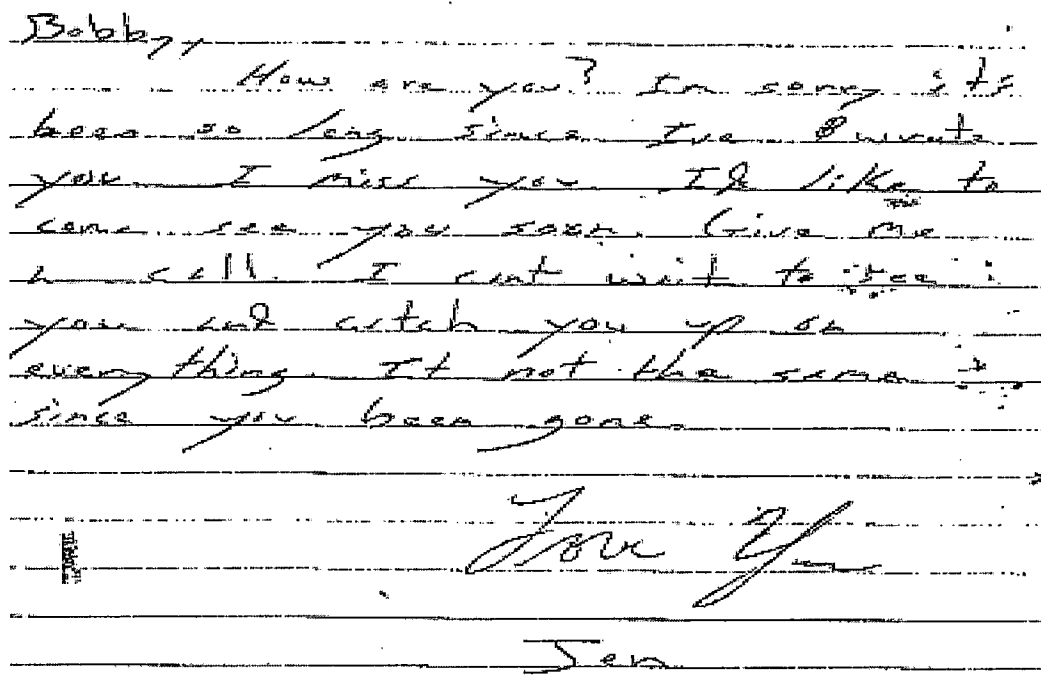 Bobby,
How are you? Im sorry its
been so long since Ive wrote
you I miss you. Id like to
come see you soon. Give me
a call. I cant wait to see
you and catch you up on
everything. It not the same
since you been gone.
Love You
Jen